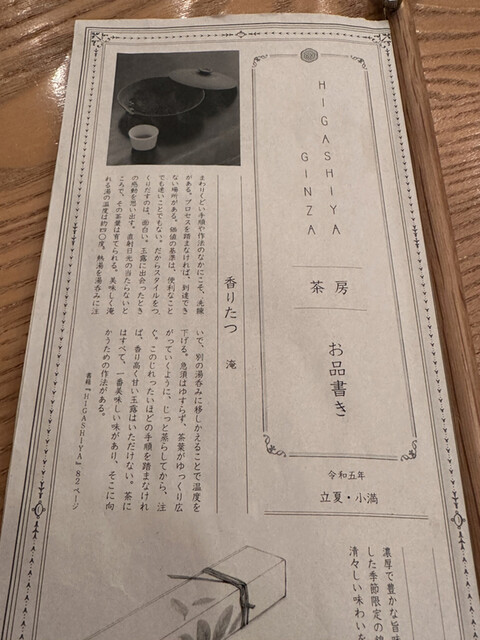 HIGASHIYA
GINZA
茶房
お品書き
令和五年
立夏・小満
香りたつ 滝
まわりくどい手順や作法のなかにこそ、洗練
がある。プロセスを踏まなければ、到達でき
ない場所がある。価値の基準は、便利なこと
でも速いことでもない。だからスタイルをつ
くりだすのは、面白い。玉露に出会ったとき
の感動を思い出す。直射日光の当たらないと
ころで、その茶葉は育てられる。美味しく淹
れる湯の温度は約四〇度。熱湯を湯呑みに注
いで、別の湯呑みに移しかえることで温度を
下げる。急須はゆすらず、茶葉がゆっくり広
がっていくように、じっと蒸らしてから、注
ぐ。このじれったいほどの手順を踏まなけれ
ば、香り高く甘い玉露はいただけない。茶に
はすべて、一番美味しい味があり、そこに向
かうための作法がある。
書籍『HIGASHIYA』82ページ
濃厚で豊かな旨味
した季節限定の
清々しい味わいを